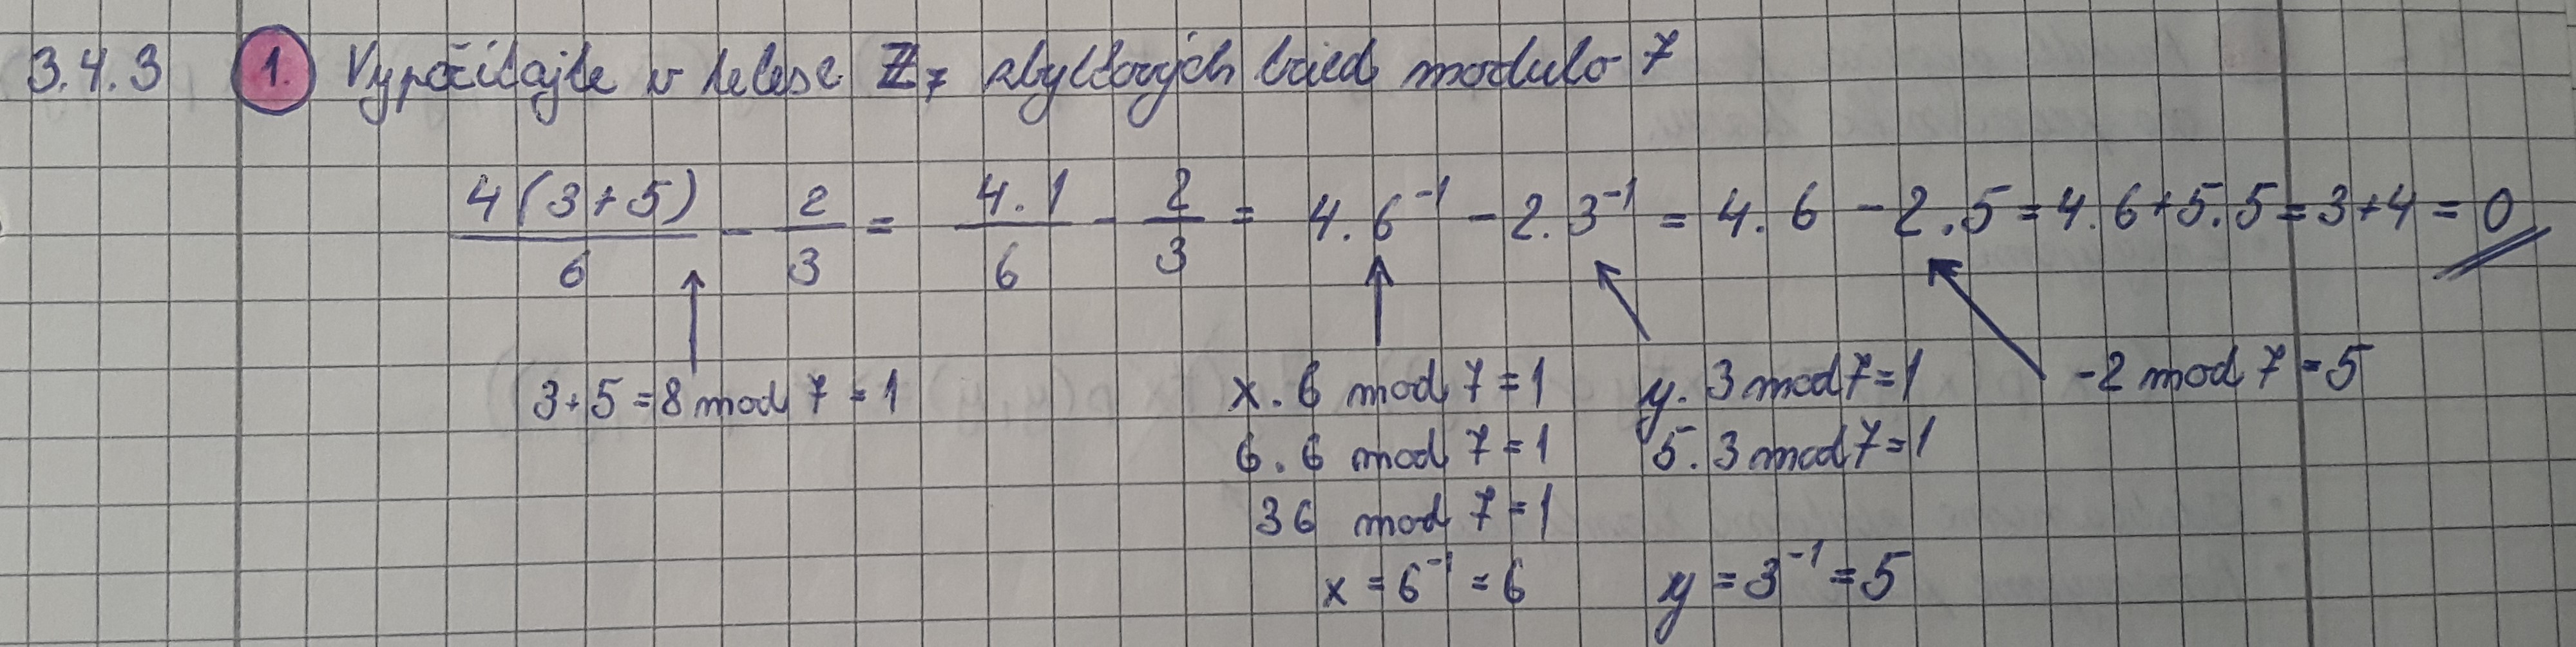 3.4.3 1. Vypočítajte v telese ℤ₇ zbytkových tried modulo 7
4(3+5)/6 - 2/3 = 4.1/6 - 2/3 = 4.6⁻¹ - 2.3⁻¹ = 4.6 - 2.5 = 4.6+5.5 = 3+4 = 0
3+5=8 mod 7 = 1 x.6 mod 7=1 y.3 mod 7=1 -2 mod 7=5
6.6 mod 7=1 5.3 mod 7=1
36 mod 7=1
x = 6⁻¹ = 6 y = 3⁻¹ = 5